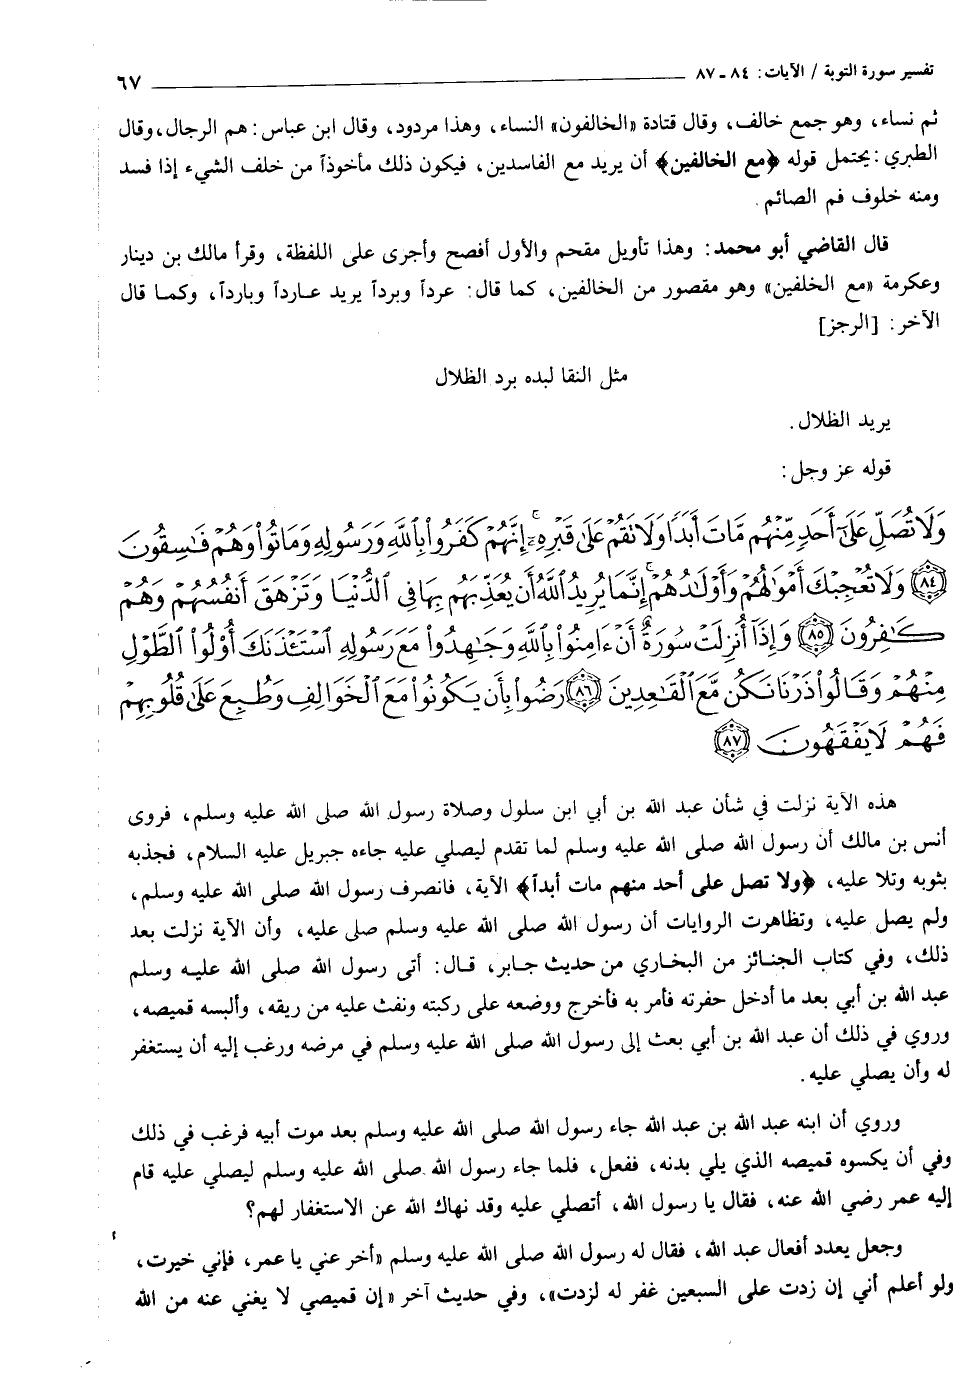 تفسير سورة التوبة / الآيات: ٨٤ - ٨٧ ٦٧
ثم نساء، وهو جمع خالف، وقال قتادة «الخالفون» النساء، وهذا مردود، وقال ابن عباس: هم الرجال، وقال
الطبري: يحتمل قوله ﴿مع الخالفين﴾ أن يريد مع الفاسدين، فيكون ذلك مأخوذاً من خلف الشيء إذا فسد
ومنه خلوف فم الصائم.
قال القاضي أبو محمد: وهذا تأويل مقحم والأول أفصح وأجرى على اللفظة، وقرأ مالك بن دينار
وعكرمة «مع الخلفين» وهو مقصور من الخالفين، كما قال: عرداً وبرداً يريد عارداً وبارداً، وكما قال
الآخر: [الرجز]
مثل النقا لبده برد الظلال
يريد الظلال.
قوله عز وجل:
وَلَا تُصَلِّ عَلَىٰٓ أَحَدٍ مِّنْهُم مَّاتَ أَبَدًا وَلَا تَقُمْ عَلَىٰ قَبْرِهِۦٓ ۖ إِنَّهُمْ كَفَرُوا۟ بِٱللَّهِ وَرَسُولِهِۦ وَمَاتُوا۟ وَهُمْ فَٰسِقُونَ
﴿٨٤﴾ وَلَا تُعْجِبْكَ أَمْوَٰلُهُمْ وَأَوْلَٰدُهُمْ ۚ إِنَّمَا يُرِيدُ ٱللَّهُ أَن يُعَذِّبَهُم بِهَا فِى ٱلدُّنْيَا وَتَزْهَقَ أَنفُسُهُمْ وَهُمْ
كَٰفِرُونَ ﴿٨٥﴾ وَإِذَآ أُنزِلَتْ سُورَةٌ أَنْ ءَامِنُوا۟ بِٱللَّهِ وَجَٰهِدُوا۟ مَعَ رَسُولِهِ ٱسْتَـْٔذَنَكَ أُو۟لُوا۟ ٱلطَّوْلِ
مِنْهُمْ وَقَالُوا۟ ذَرْنَا نَكُن مَّعَ ٱلْقَٰعِدِينَ ﴿٨٦﴾ رَضُوا۟ بِأَن يَكُونُوا۟ مَعَ ٱلْخَوَالِفِ وَطُبِعَ عَلَىٰ قُلُوبِهِمْ
فَهُمْ لَا يَفْقَهُونَ ﴿٨٧﴾
هذه الآية نزلت في شأن عبد الله بن أبي ابن سلول وصلاة رسول الله صلى الله عليه وسلم، فروى
أنس بن مالك أن رسول الله صلى الله عليه وسلم لما تقدم ليصلي عليه جاءه جبريل عليه السلام، فجذبه
بثوبه وتلا عليه، ﴿ولا تصل على أحد منهم مات أبداً﴾ الآية، فانصرف رسول الله صلى الله عليه وسلم،
ولم يصل عليه، وتظاهرت الروايات أن رسول الله صلى الله عليه وسلم صلى عليه، وأن الآية نزلت بعد
ذلك، وفي كتاب الجنائز من البخاري من حديث جابر، قال: أتى رسول الله صلى الله عليه وسلم
عبد الله بن أبي بعد ما أدخل حفرته فأمر به فأخرج ووضعه على ركبته ونفث عليه من ريقه، وألبسه قميصه،
وروي في ذلك أن عبد الله بن أبي بعث إلى رسول الله صلى الله عليه وسلم في مرضه ورغب إليه أن يستغفر
له وأن يصلي عليه.
وروي أن ابنه عبد الله بن عبد الله جاء رسول الله صلى الله عليه وسلم بعد موت أبيه فرغب في ذلك
وفي أن يكسوه قميصه الذي يلي بدنه، ففعل، فلما جاء رسول الله صلى الله عليه وسلم ليصلي عليه قام
إليه عمر رضي الله عنه، فقال يا رسول الله، أتصلي عليه وقد نهاك الله عن الاستغفار لهم؟
وجعل يعدد أفعال عبد الله، فقال له رسول الله صلى الله عليه وسلم «أخر عني يا عمر، فإني خيرت،
ولو أعلم أني إن زدت على السبعين غفر له لزدت»، وفي حديث آخر «إن قميصي لا يغني عنه من الله